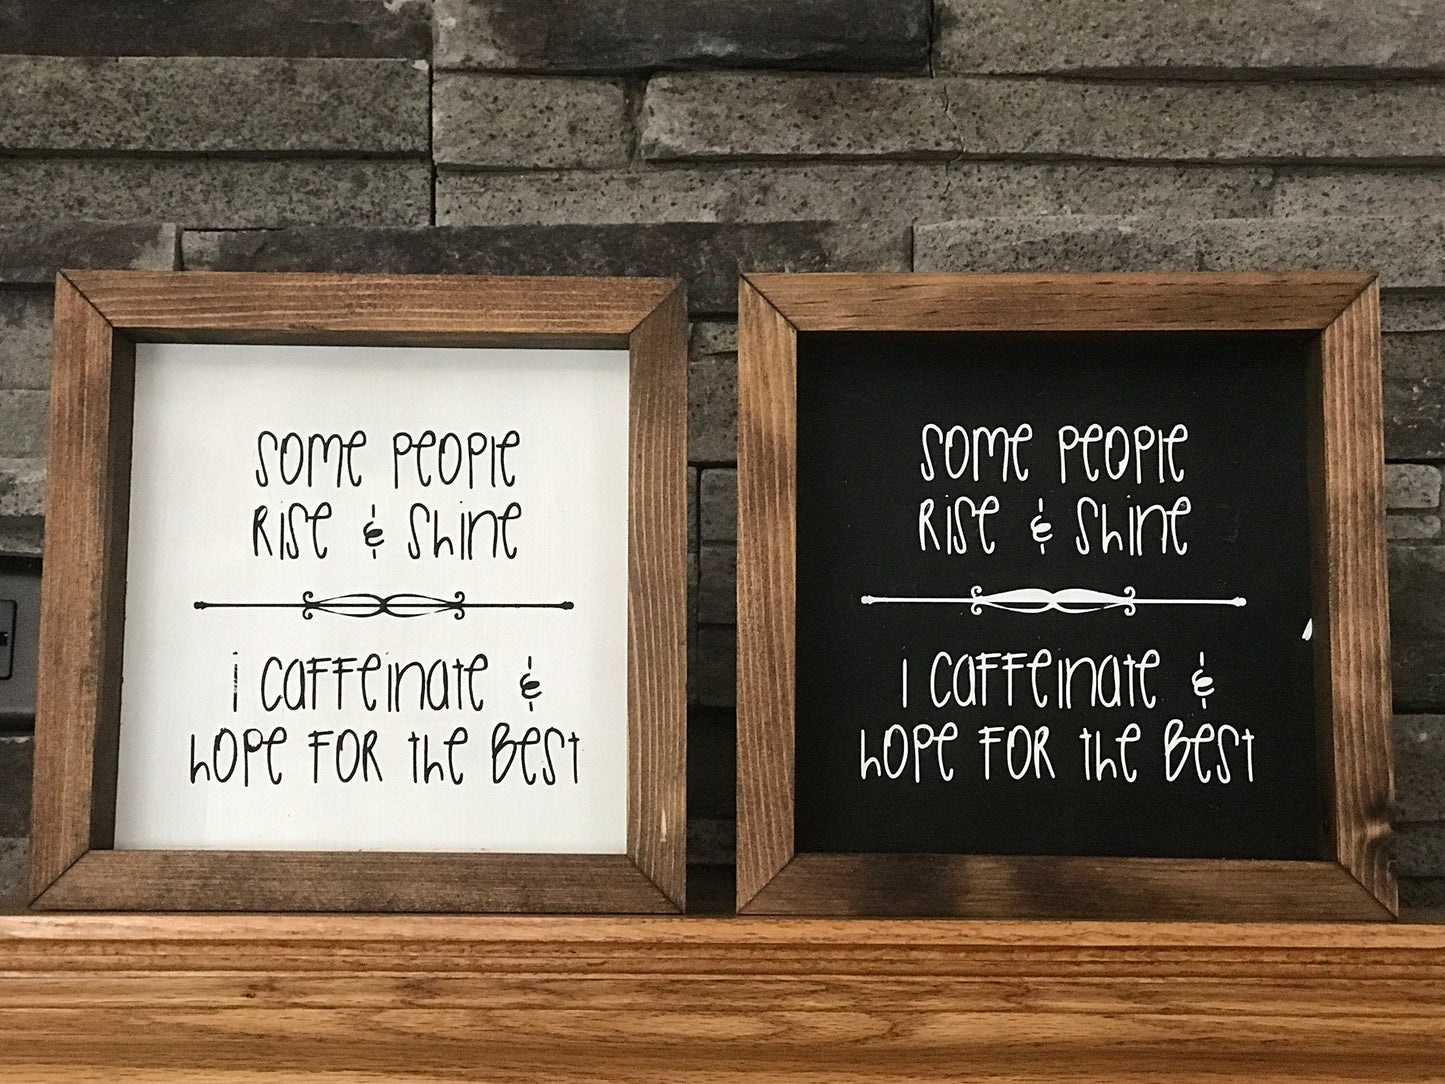 Some people
Rise & Shine
i caffeinate &
hope for the Best
Some people
Rise & Shine
I caffeinate &
hope for the Best